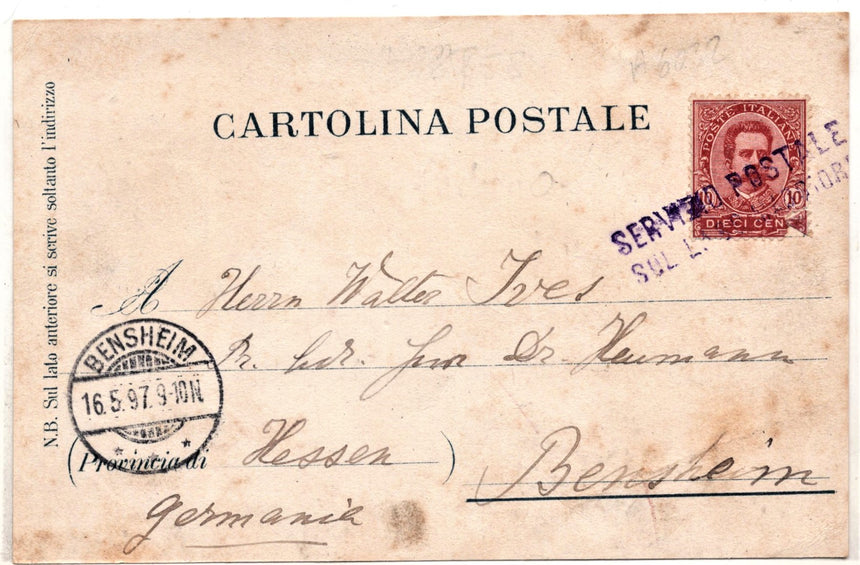 A 6022
CARTOLINA POSTALE
POSTE ITALIANE
10 10
DIECI CEN
SERVIZIO POSTALE
SUL
N.B. Sul lato anteriore si scrive soltanto l'indirizzo
A Herrn Walter Ives
Dr. Heumann
BENSHEIM
16.5.97. 9-10N
(Provincia di Hessen)
Bensheim
Germania